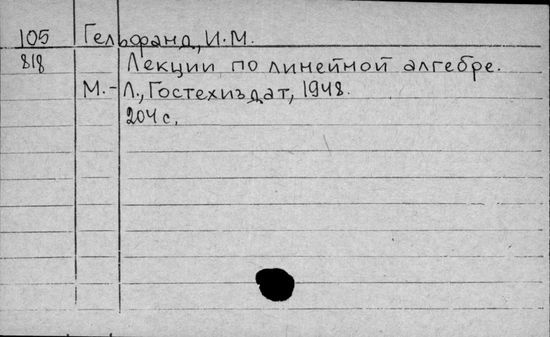 105 Гельфанд, И.М.
818 Лекции по линейной алгебре.
М.-Л., Гостехиздат, 1948.
204 с.